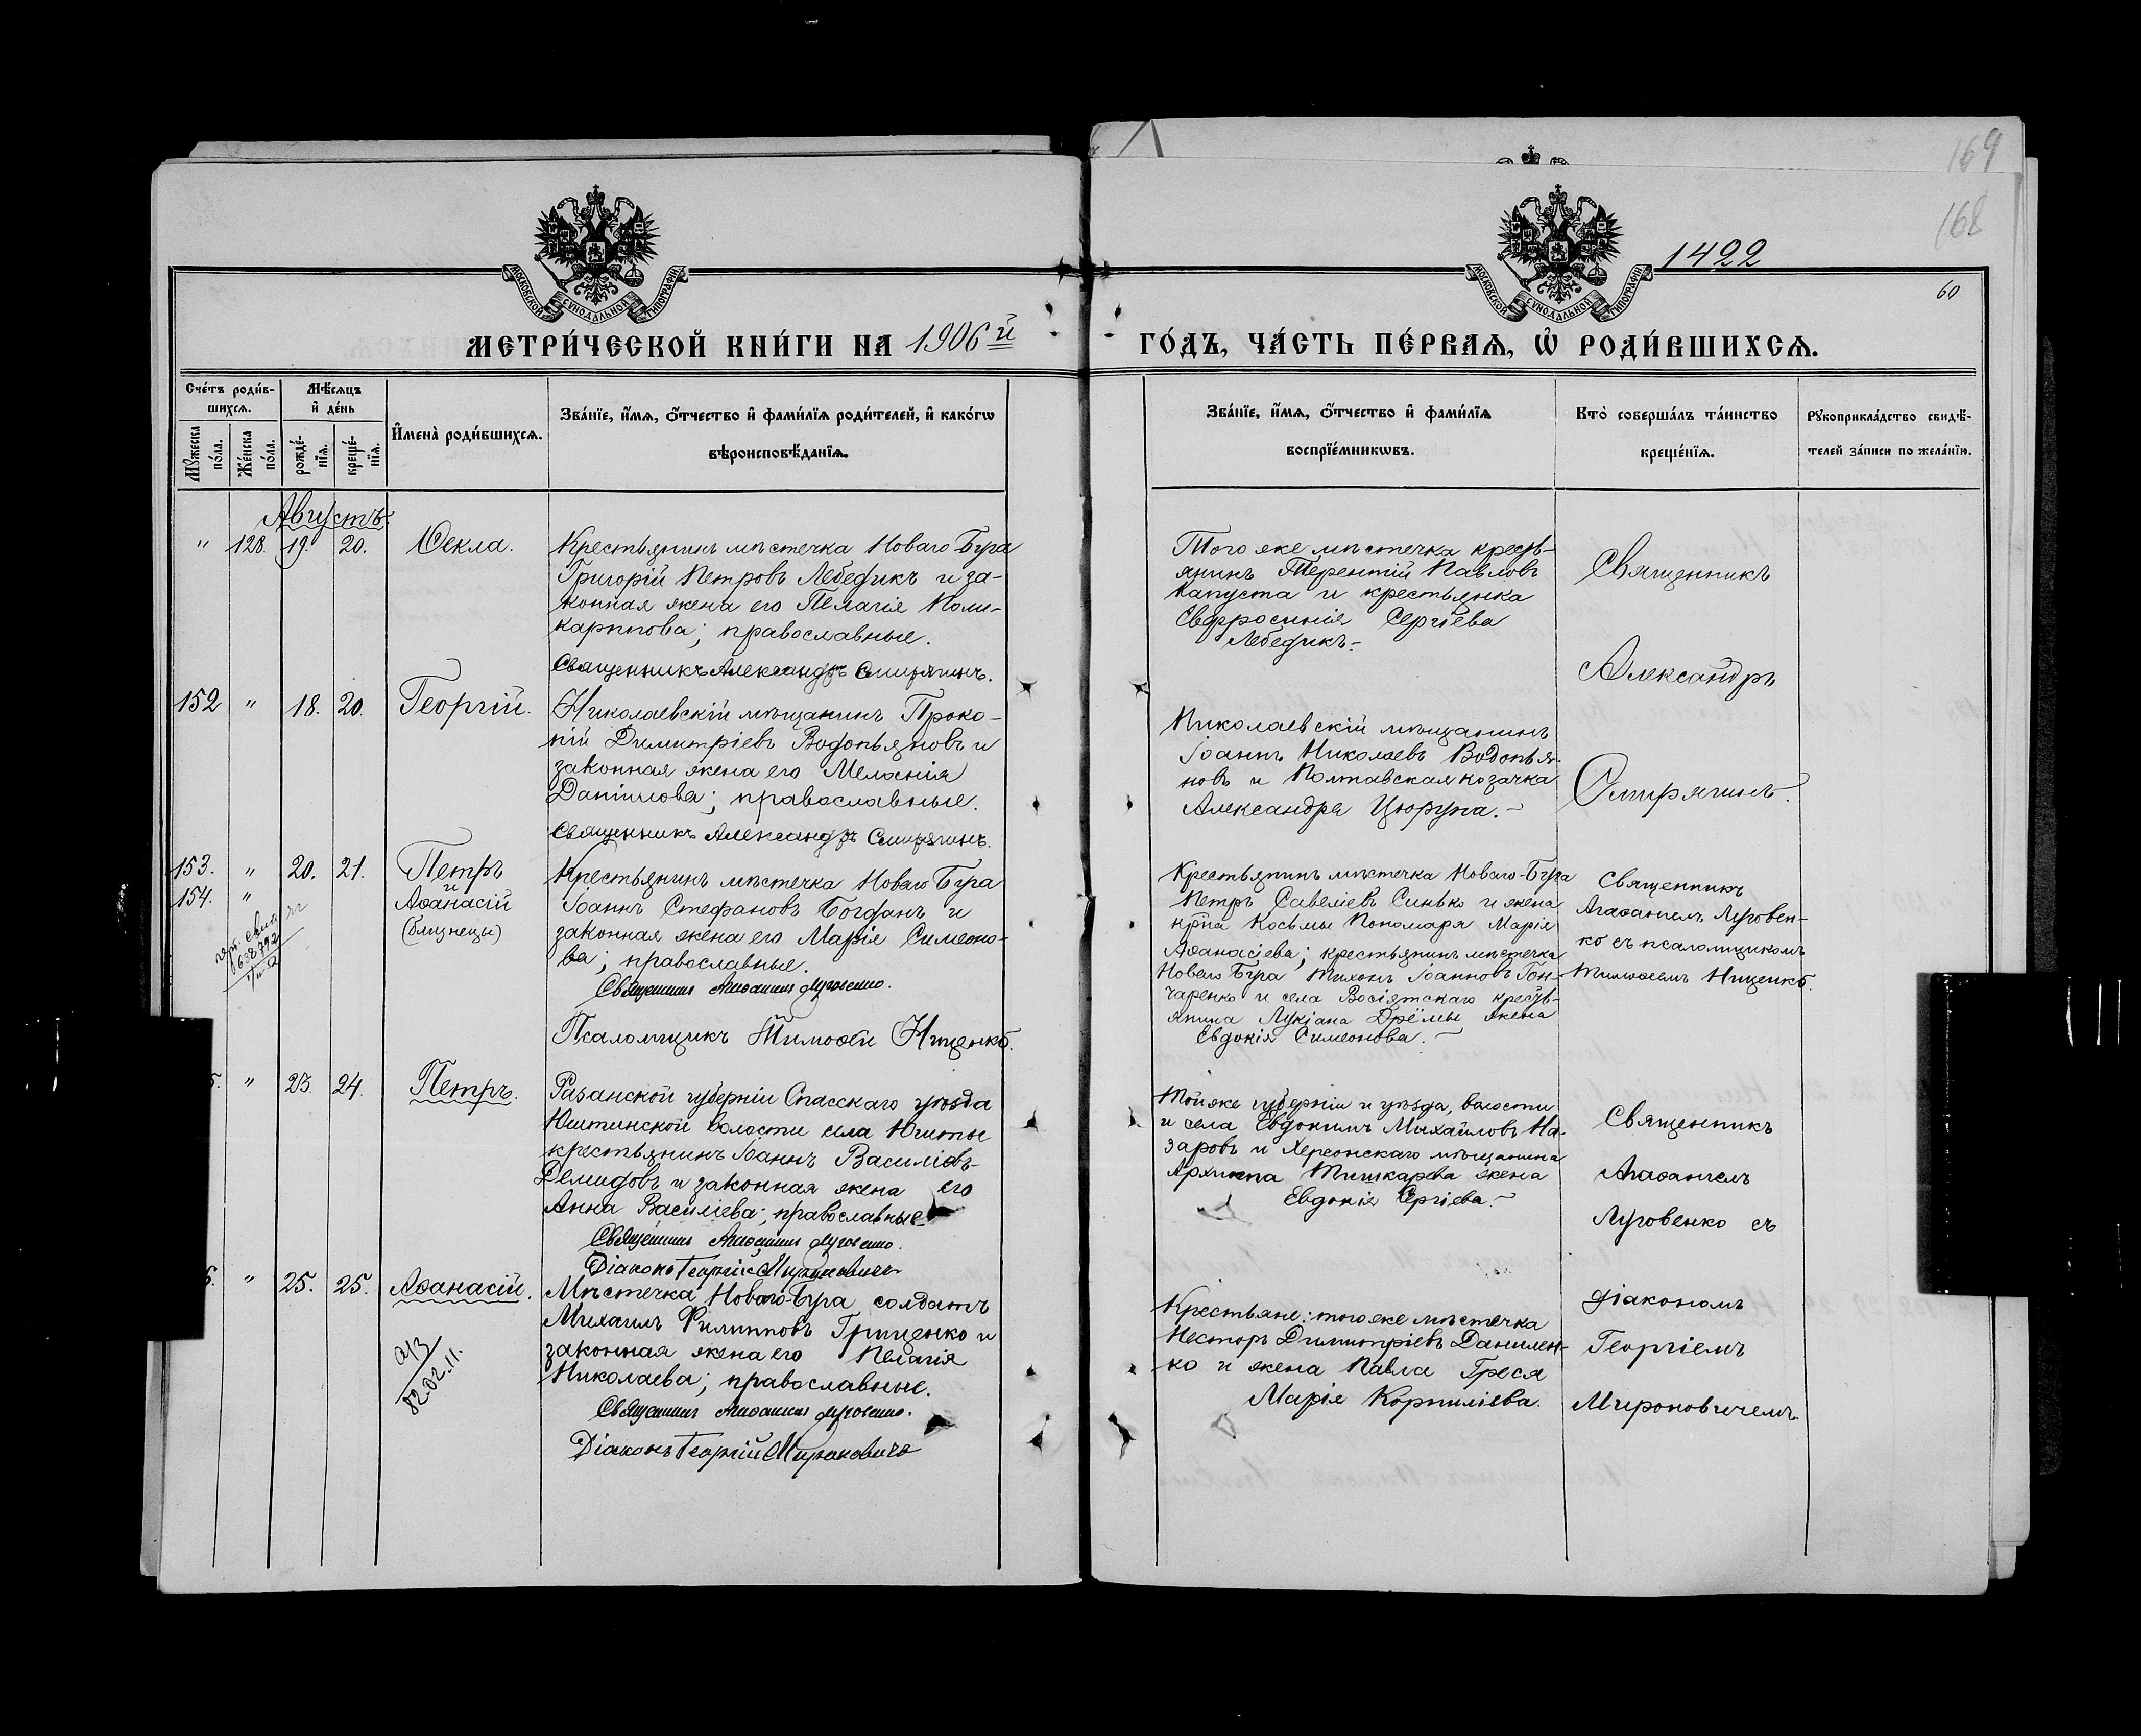 169
168
1422
60
МОСКОВСКОЙ СУНОДАЛЬНОЙ ТИПОГРАФІИ
МОСКОВСКОЙ СУНОДАЛЬНОЙ ТИПОГРАФІИ
МЕТРИ́ЧЕСКОЙ КНИ́ГИ НА 1906 й
ГО́ДЪ, ЧА́СТЬ ПЕ́РВАѦ, Ѽ РОДИ́ВШИХСѦ.
Сче́тъ роди́в-
шихсѧ.
Мꙋ́жеска по́ла.
Же́нска по́ла.
Мѣ́сѧцъ
и҆ де́нь
рожде́-
нїѧ.
креще́-
нїѧ.
И҆мена̀ роди́вшихсѧ.
Зва́нїе, и҆́мѧ, ѻ҆́тчество и҆ фами́лїѧ роди́телей, и҆ како́гѡ
вѣроисповѣ́данїѧ.
Зва́нїе, и҆́мѧ, ѻ҆́тчество и҆ фами́лїѧ
воспрїе́мникѡвъ.
Кто̀ соверша́лъ та́инство
креще́нїѧ.
Рꙋкоприкла́дство свидѣ́-
телей за́писи по жела́нїю.
Августъ.
" 128. 19. 20. Ѳекла.
Крестьянинъ мѣстечка Новаго Буга
Григорій Петровъ Лебедикъ и за-
конная жена его Пелагія Поли-
карпова; православные.
Священникъ Александръ Смирягинъ.
Того же мѣстечка кресть-
янинъ Терентій Павловъ
Капуста и крестьянка
Евфросинія Сергіева
Лебедикъ.-
Священникъ
Александръ
Смирягинъ.
152 " 18. 20. Георгій.
Николаевскій мѣщанинъ Проко-
пій Димитріевъ Водопьяновъ и
законная жена его Меланія
Даніилова; православные.
Священникъ Александръ Смирягинъ.
Николаевскій мѣщанинъ
Іоаннъ Николаевъ Водопья-
новъ и Полтавская козачка
Александра Цюрупа.-
153. " 20. 21. Петръ
и
154. " Аѳанасій
(близнецы)
Крестьянинъ мѣстечка Новаго Буга
Іоаннъ Стефановъ Богданъ и
законная жена его Марія Симеоно-
ва; православные.
Священникъ Агаѳангелъ Луговенко.
Псаломщикъ Тимоѳей Ниценко.
Крестьянинъ мѣстечка Новаго-Буга
Петръ Савеліевъ Синько и жена
кр̃на Косьмы Пономаря Марія
Аѳанасіева; крестьянинъ мѣстечка
Новаго Буга Тихонъ Іоанновъ Гон-
чаренко и села Восіятскаго кресть-
янина Лукіана Дрёмы жена
Евдокія Симеонова.-
Священникъ
Агаѳангелъ Луговен-
ко съ псаломщикомъ
Тимоѳеемъ Ниценко.
" 23. 24. Петръ.
Рязанской губерніи Спасскаго уѣзда
Ижевской волости села Ижевскаго
крестьянинъ Іоаннъ Василіевъ
Демидовъ и законная жена его
Анна Василіева; православные
Священникъ Агаѳангелъ Луговенко.
Діаконъ Георгій Мироновичъ
Той же губерніи и уѣзда, волости
и села Евдокимъ Михайловъ На-
заровъ и Херсонскаго мѣщанина
Архиппа Тишкарева жена
Евдокія Сергіева.-
Священникъ
Агаѳангелъ
Луговенко съ
діакономъ
Георгіемъ
Мироновичемъ.
" 25. 25. Аѳанасій.
82.02.11.
Мѣстечка Новаго-Буга солдатъ
Михаилъ Филипповъ Гриценко и
законная жена его Пелагія
Николаева; православные.
Священникъ Агаѳангелъ Луговенко.
Діаконъ Георгій Мироновичъ
Крестьяне: того же мѣстечка
Несторъ Димитріевъ Данилен-
ко и жена Павла Греся
Марія Корниліева.